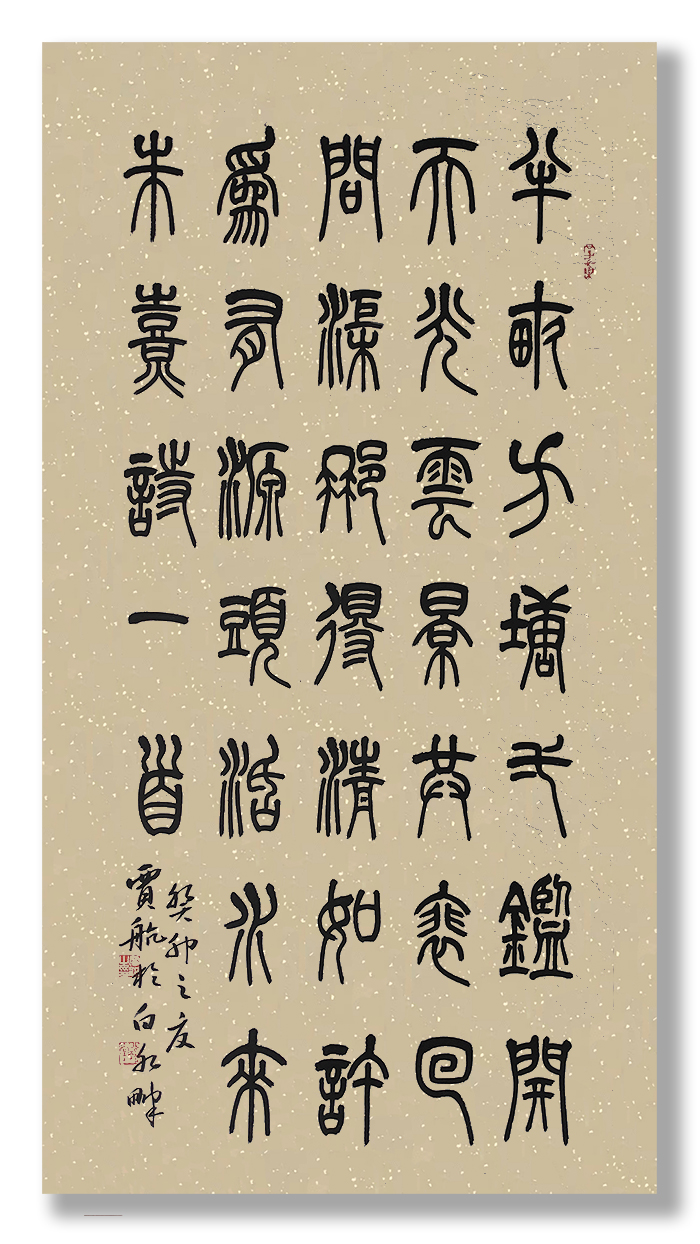 半畝方塘弌鑑開
天光雲景共裵回
問渠那得清如許
爲有源頭活水來
朱熹詩一首
癸卯之夏
賈航於白水畔